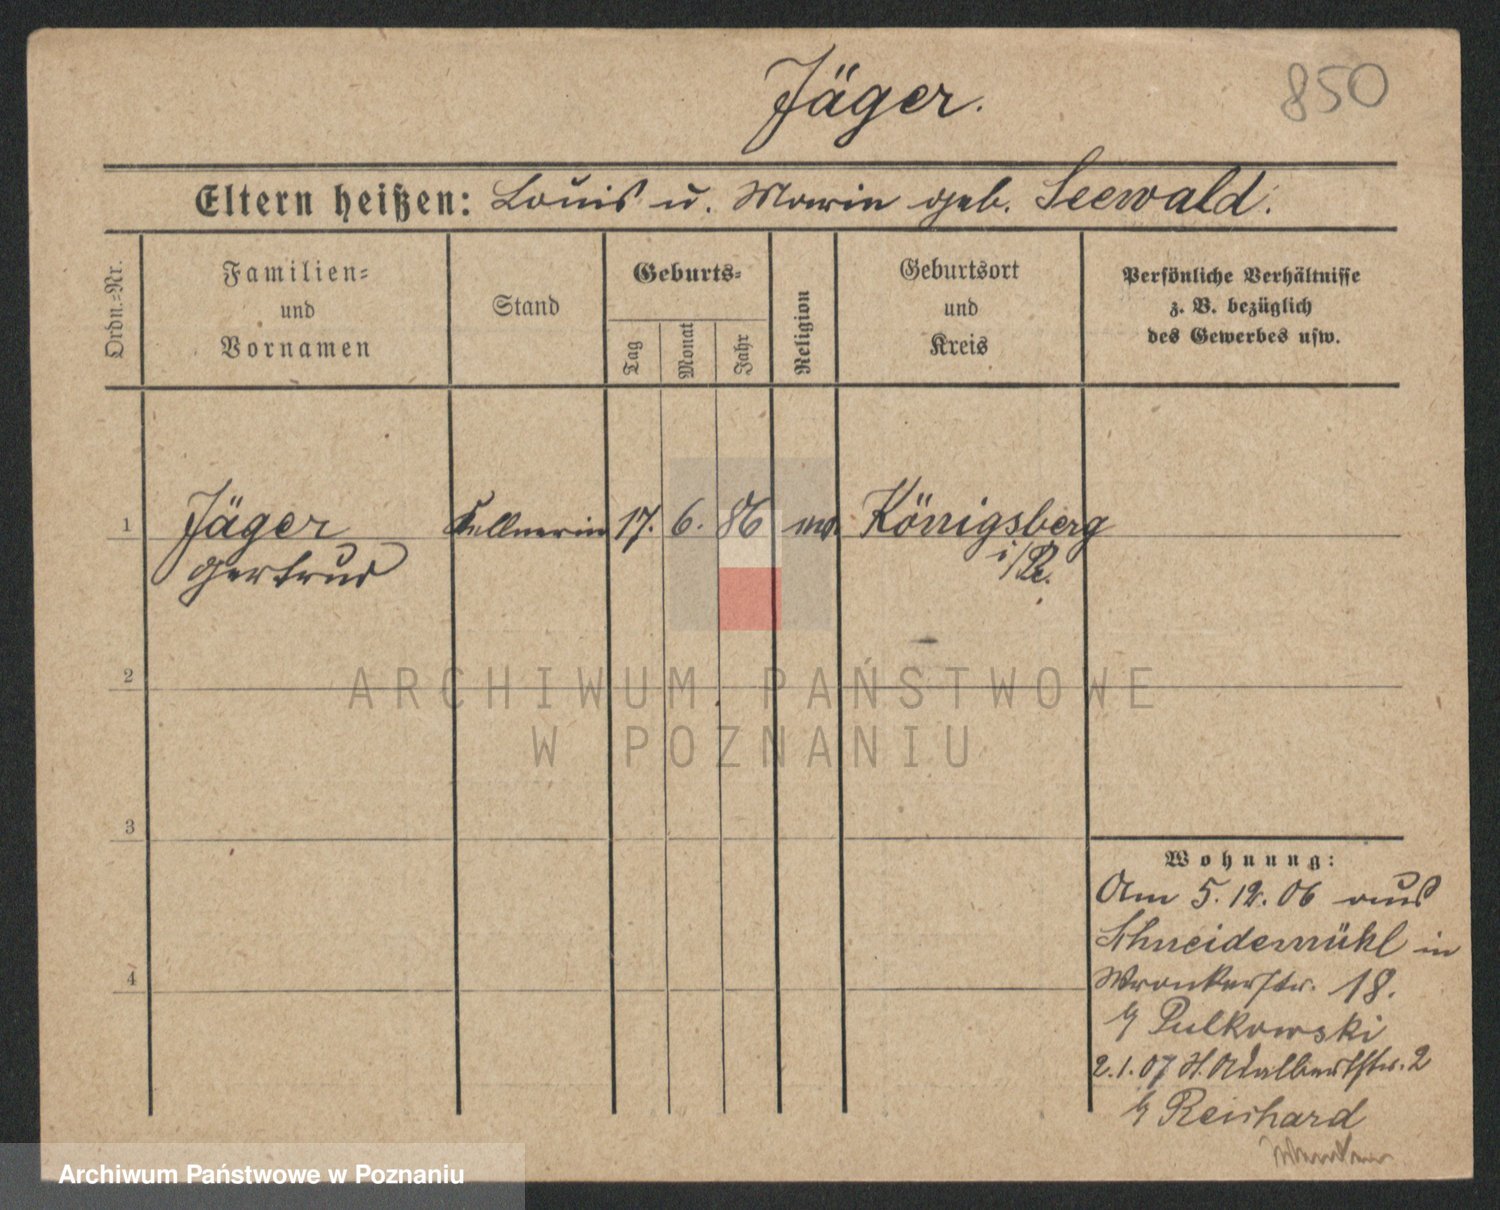 Jäger.
850
Eltern heißen: Louis u. Marie geb. Seewald.
Ordn.=Nr.
Familien=
und
Vornamen
Stand
Geburts=
Tag
Monat
Jahr
Religion
Geburtsort
und
Kreis
Persönliche Verhältnisse
z. B. bezüglich
des Gewerbes usw.
1
Jäger
Gertrud
Kellnerin
17.
6.
86
Königsberg
i/Pr.
2
ARCHIWUM PAŃSTWOWE
W POZNANIU
3
4
Wohnung:
Am 5.12.06 aus
Schneidemühl in
Wronkerstr. 18.
b/ Pulkowski
2.1.07 St. Adalbertstr. 2
b/ Reinhard
Archiwum Państwowe w Poznaniu